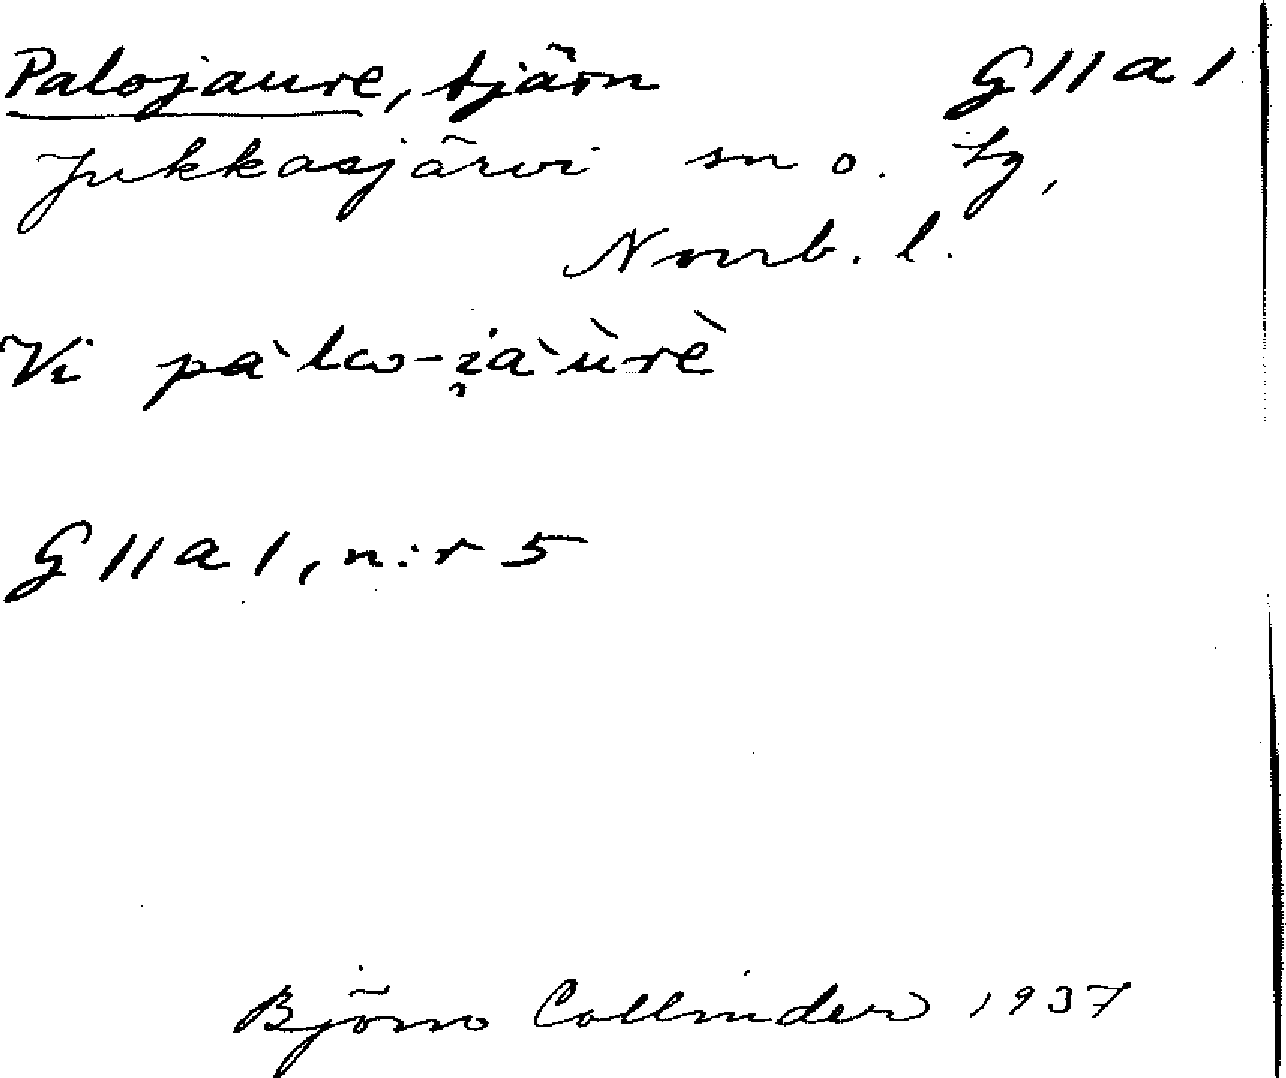 Palojaure, tjärn G II a 1
Jukkasjärvi sn o. tg,
Norrb. l.
Vi pàlω-i̯àùrè
G II a 1, n:r 5
Björn Collinder 1937